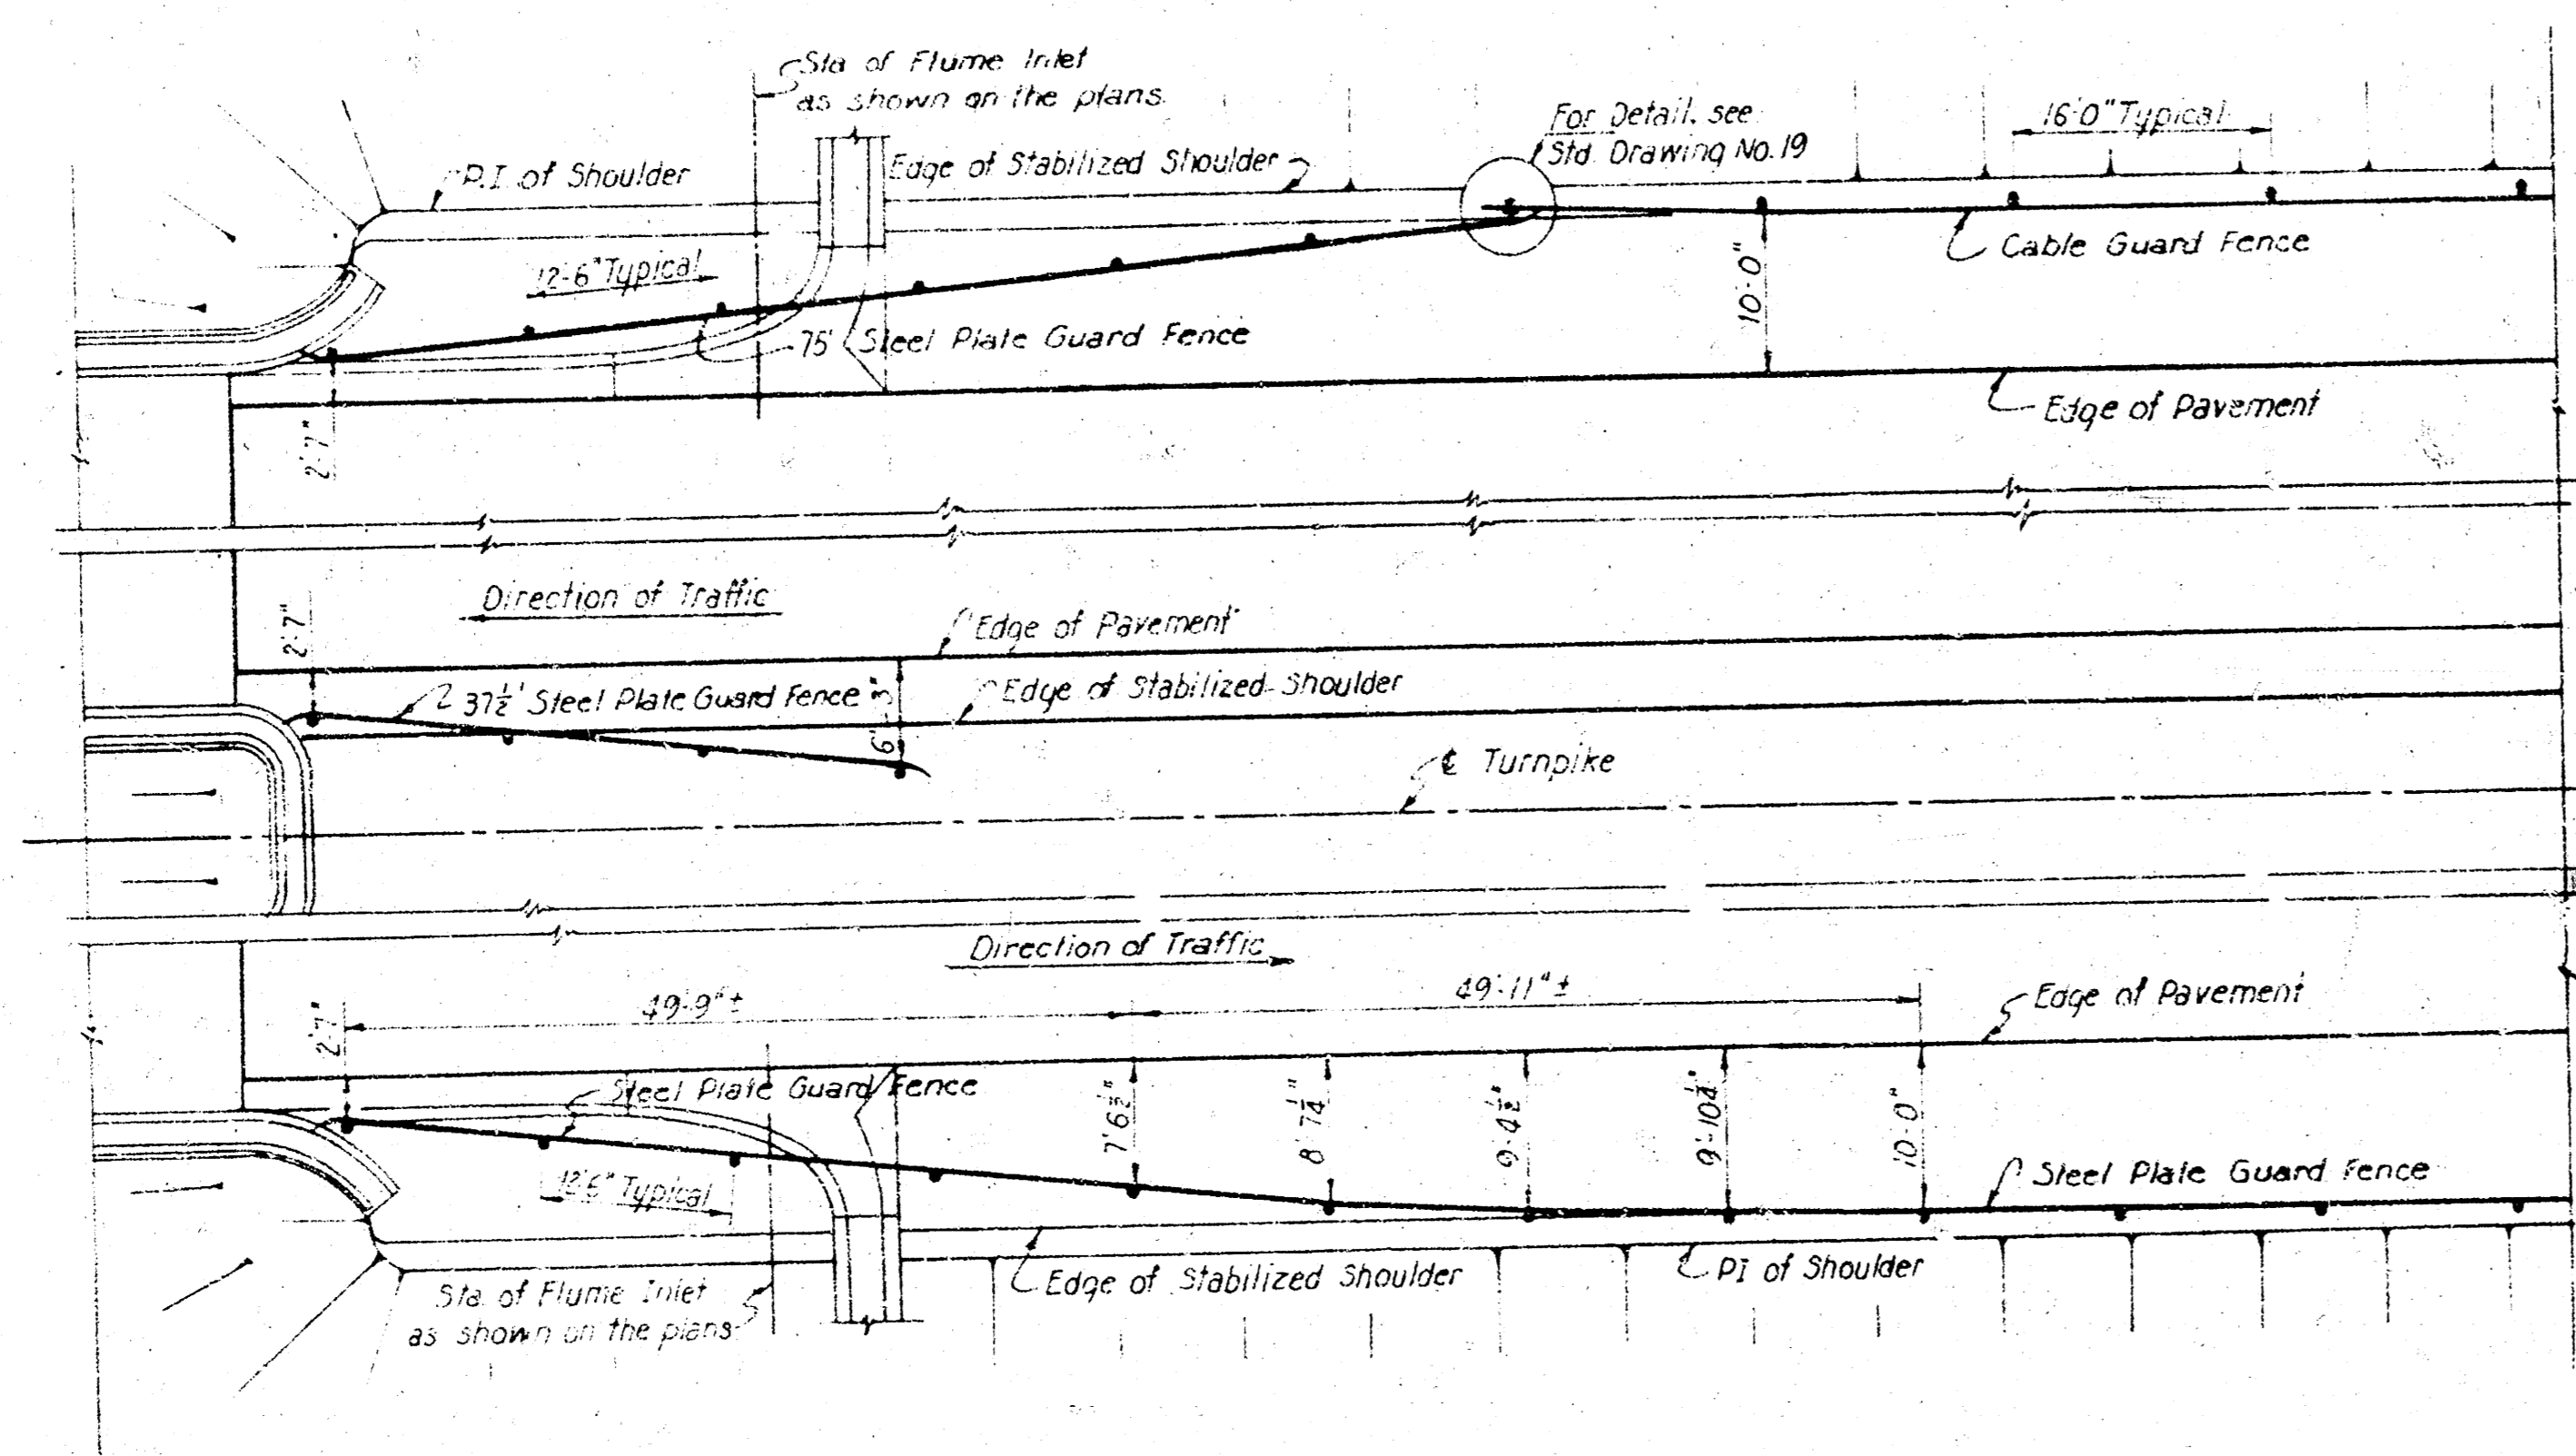 Sta of Flume Inlet
as shown on the plans.
For Detail, see
Std. Drawing No. 19
16'-0" Typical
P.I. of Shoulder
Edge of Stabilized Shoulder
Cable Guard Fence
12'-6" Typical
10'-0"
75' Steel Plate Guard Fence
Edge of Pavement
2'-7"
Direction of Traffic
Edge of Pavement
2'-7"
37½' Steel Plate Guard Fence
6'-3"
Edge of Stabilized Shoulder
℄ Turnpike
Direction of Traffic
49'-9"±
49'-11"±
Edge of Pavement
2'-7"
Steel Plate Guard Fence
7'6½"
8'7¼"
9'-4½"
9'-10¼"
10'-0"
12'6" Typical
Steel Plate Guard Fence
Edge of Stabilized Shoulder
PI of Shoulder
Sta. of Flume Inlet
as shown on the plans